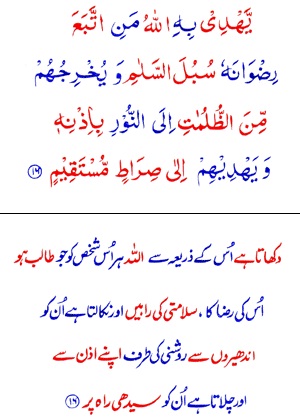 يَّهْدِىْ بِهِ اللّٰهُ مَنِ اتَّبَعَ
رِضْوَانَهٗ سُبُلَ السَّلٰمِ وَ يُخْرِجُهُمْ
مِّنَ الظُّلُمٰتِ اِلَى النُّوْرِ بِاِذْنِهٖ
وَ يَهْدِيْهِمْ اِلٰى صِرَاطٍ مُّسْتَقِيْمٍ ﴿۱۶﴾
دکھاتا ہے اُس کے ذریعہ سے اللہ ہر اُس شخص کو جو طالب ہو
اُس کی رضا کا، سلامتی کی راہیں اور نکالتا ہے اُن کو
اندھیروں سے روشنی کی طرف اپنے اذن سے
اور چلاتا ہے اُن کو سیدھی راہ پر ﴿۱۶﴾